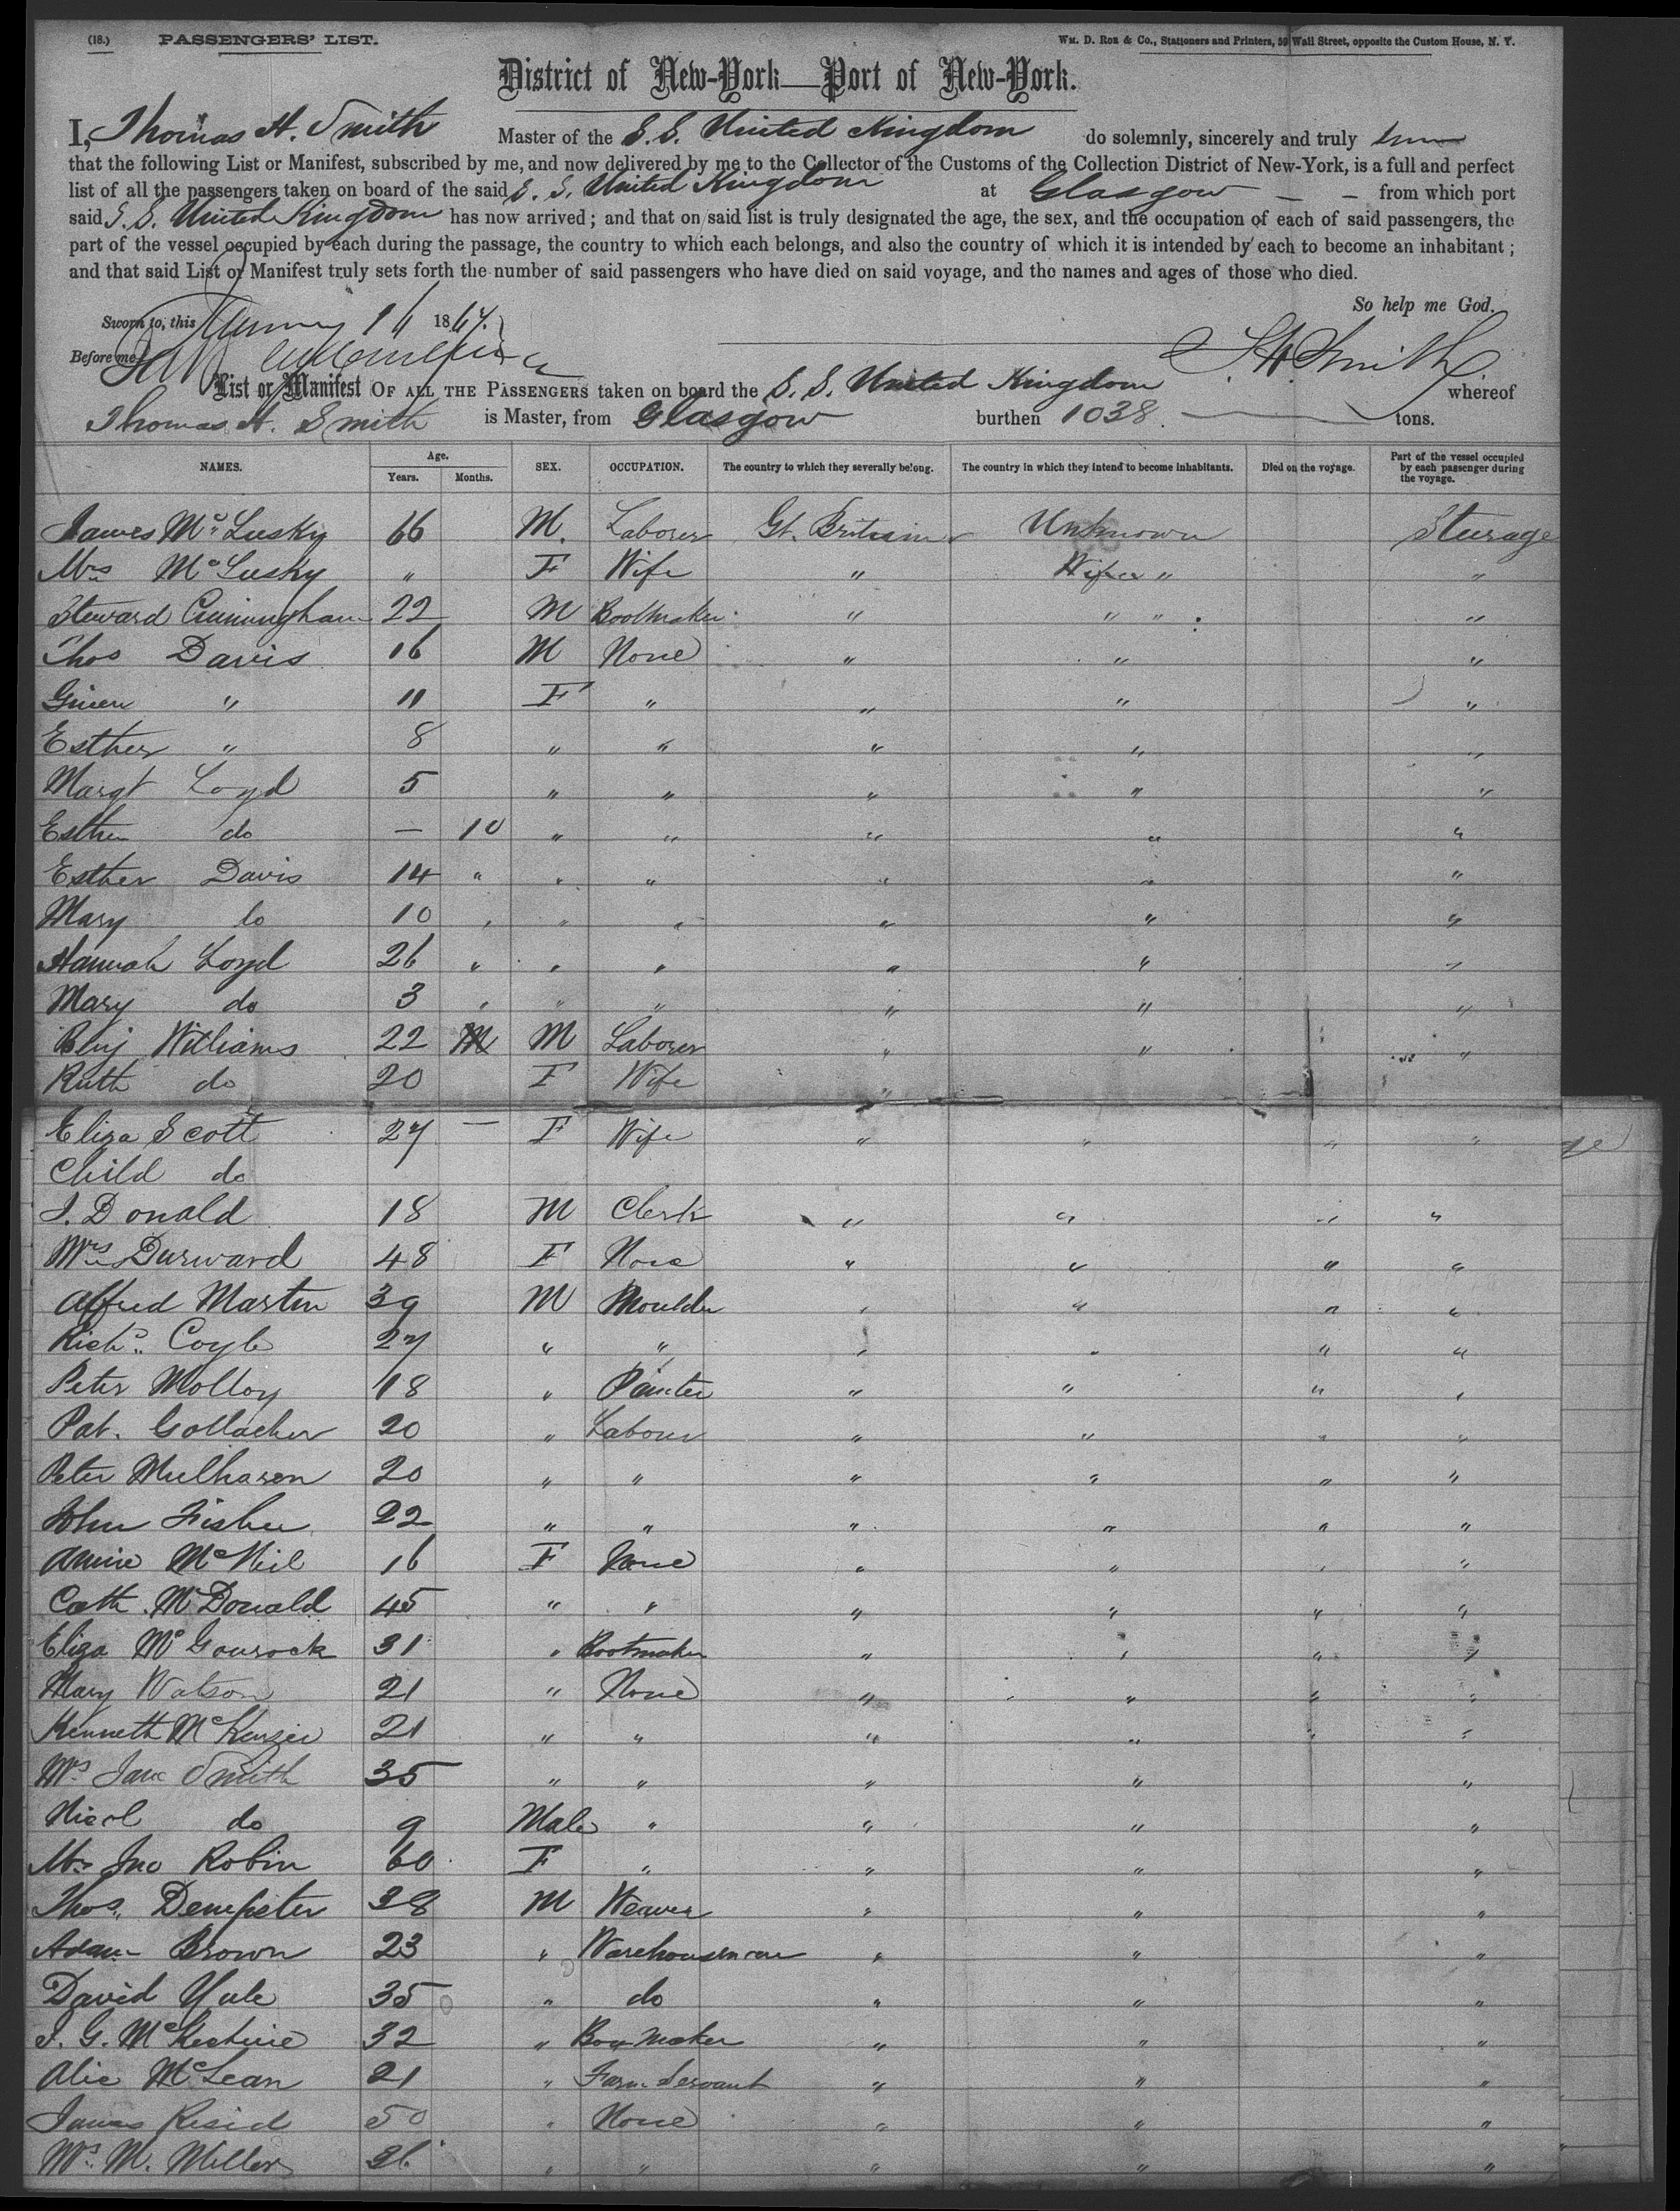 (18.) PASSENGERS' LIST. Wm. D. Roe & Co., Stationers and Printers, 59 Wall Street, opposite the Custom House, N. Y.
District of New-York—Port of New-York.
I, Thomas H. Smith Master of the S.S. United Kingdom do solemnly, sincerely and truly
that the following List or Manifest, subscribed by me, and now delivered by me to the Collector of the Customs of the Collection District of New-York, is a full and perfect
list of all the passengers taken on board of the said S. S. United Kingdom at Glasgow — — from which port
said S. S. United Kingdom has now arrived; and that on said list is truly designated the age, the sex, and the occupation of each of said passengers, the
part of the vessel occupied by each during the passage, the country to which each belongs, and also the country of which it is intended by each to become an inhabitant;
and that said List or Manifest truly sets forth the number of said passengers who have died on said voyage, and the names and ages of those who died.
So help me God.
Sworn to, this January 16 1864.
Before me T H Smith
List or Manifest OF ALL THE PASSENGERS taken on board the S. S. United Kingdom whereof
Thomas H. Smith is Master, from Glasgow burthen 1038 tons.
NAMES. Age. Years. Months. SEX. OCCUPATION. The country to which they severally belong. The country in which they intend to become inhabitants. Died on the voyage. Part of the vessel occupied by each passenger during the voyage.
James Mc Lusky 66 M. Laborer Gt. Britain Unknown Sturage
Mrs McLusky " F Wife " " "
Steward Cuningham 22 M Bootmaker " " " "
Thos Davis 16 M None " " "
" 11 F " " " "
Esther " 8 " " " " "
Margt Loyd 5 " " " " "
Esther do — 10 " " " " "
Esther Davis 14 " " " " " "
Mary do 10 " " " " " "
Hannah Loyd 26 " " " " " "
Mary do 3 " " " " " "
Benj Williams 22 M Laborer " " "
Ruth do 20 F Wife "
Eliza Scott 27 — F Wife " " " "
Child do
J. Donald 18 M Clerk " " " "
Mrs Durward 48 F None " " " "
Alfred Martin 39 M Moulder " " " "
Richd. Coyle 27 " " " " " "
Peter Molloy 18 " Painter " " " "
Pat. Gollacher 20 " Labour " " " "
Peter Mulharen 20 " " " " " "
John Fisher 22 " " " " " "
Annie McNeil 16 F None " " " "
Cath. McDonald 45 " " " " " "
Eliza McGourock 31 " Bootmaker " " " "
Mary Watson 21 " None " " " "
Kenneth McKenzie 21 " " " " " "
Mrs. Jane Smith 35 " " " " "
Nicol do 9 Male " " " "
Mrs Jno Robin 60 F " " " "
Thos. Dempster 38 M Weaver " " "
Adam Brown 23 " Warehouseman " " "
David Yule 35 " do " " "
J. G. McKechnie 32 " Box Maker " " "
Alic McLean 21 " Farm Servant " " "
James 50 " None " " "
Mrs. M. Miller 26 " " " " "